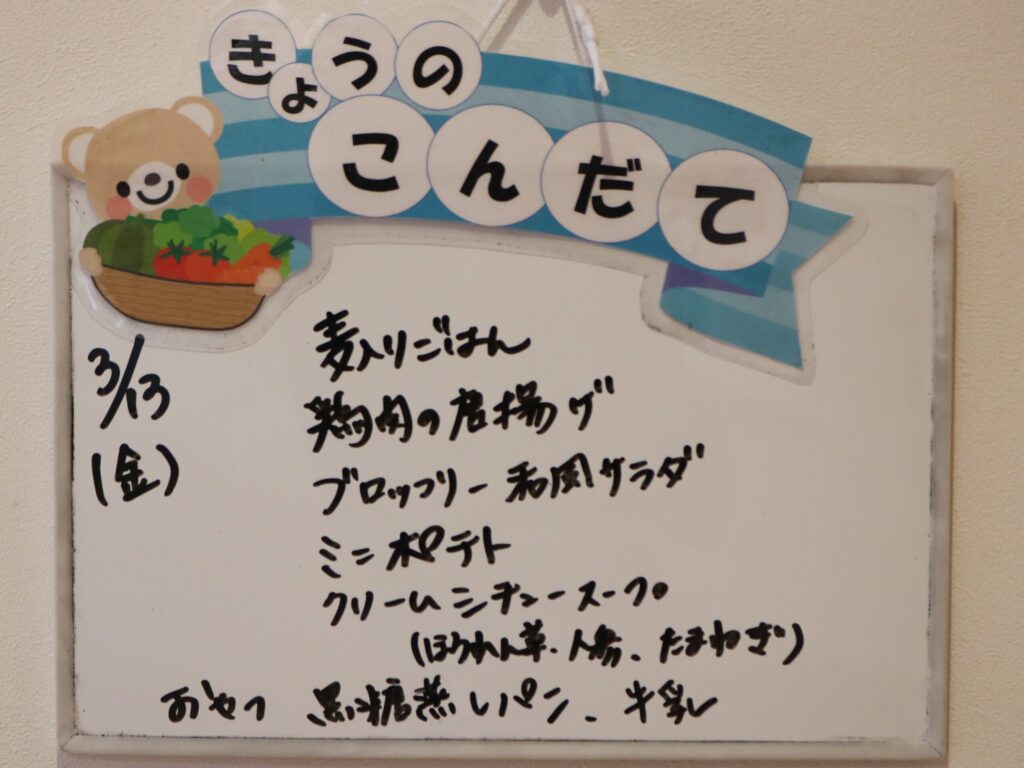 きょうの
こんだて
3/13
(金)
麦入りごはん
鶏肉の唐揚げ
ブロッコリー和風サラダ
ミニポテト
クリームシチュースープ
(ほうれん草、人参、たまねぎ)
おやつ 黒糖蒸しパン、牛乳